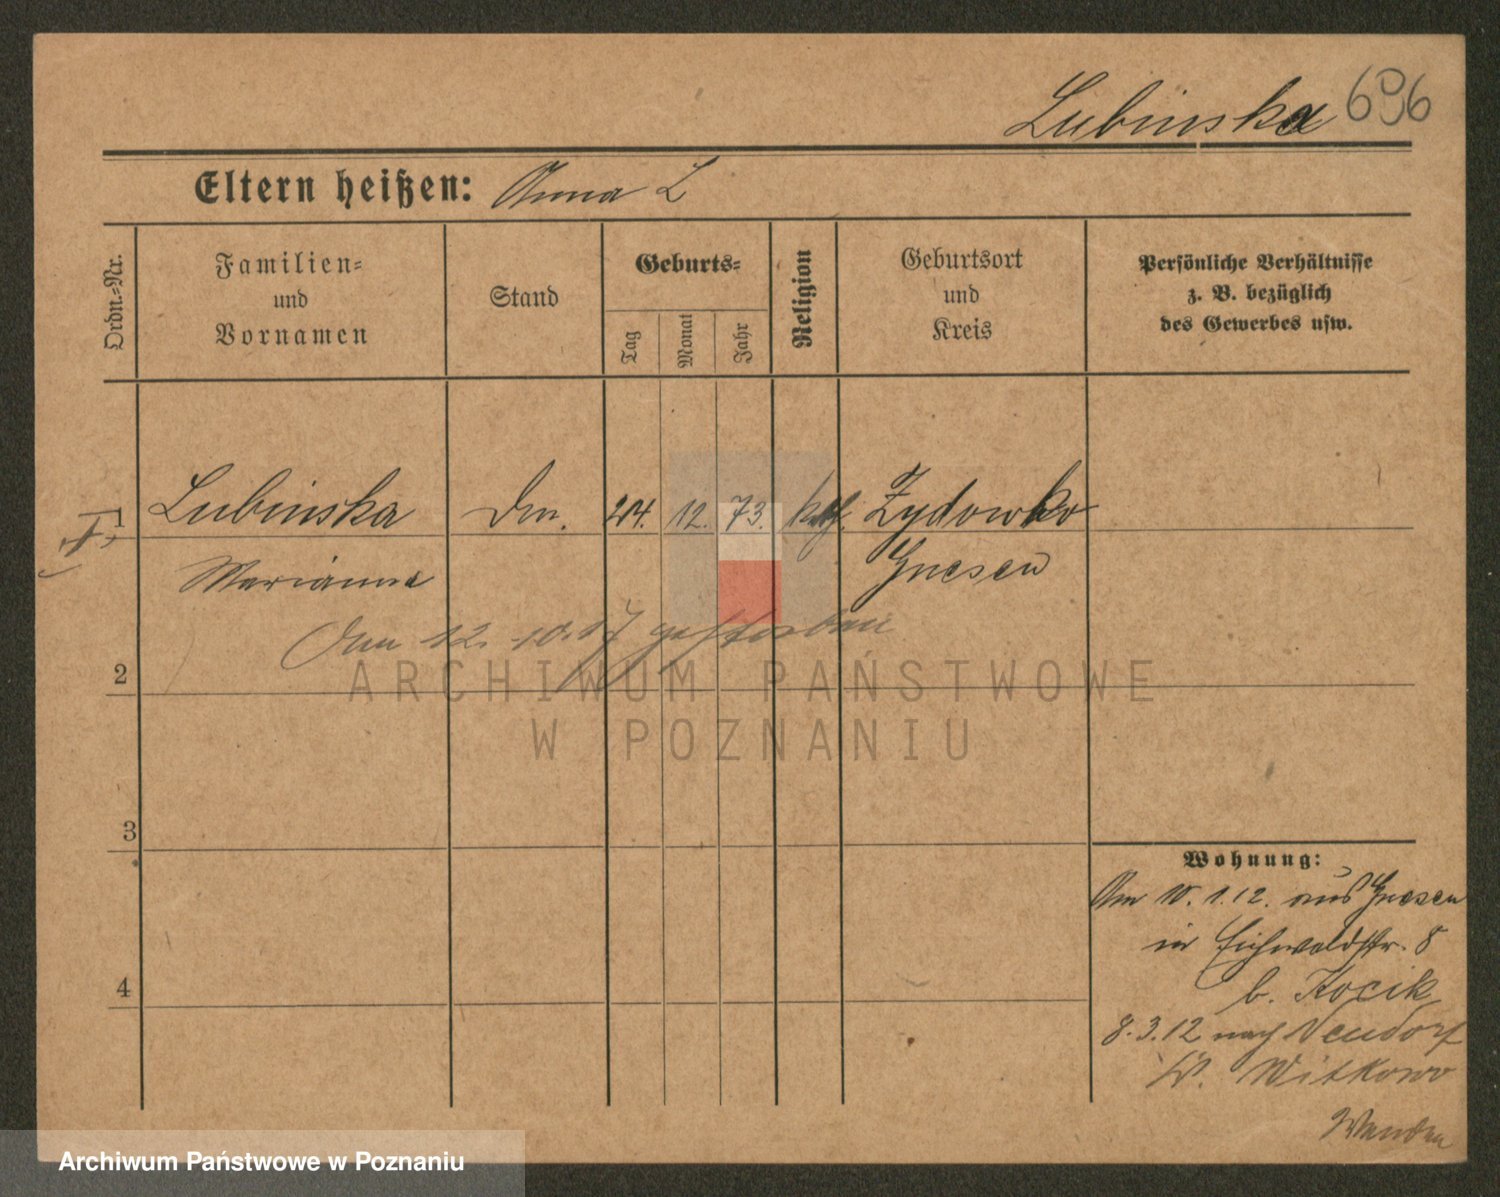 Lubinska 696
Eltern heißen: Anna L
Ordn.-Nr.
Familien-
und
Vornamen
Stand
Geburts-
Tag
Monat
Jahr
Religion
Geburtsort
und
Kreis
Persönliche Verhältnisse
z. B. bezüglich
des Gewerbes usw.
1 Lubinska 24. 12. 73. kath. Zydowko
Marianna Gnesen
Am 12. 10. 17 gestorben
2
ARCHIWUM PAŃSTWOWE
W POZNANIU
3
4
Wohnung:
Am 10. 1. 12. aus Gnesen
in Eichwaldstr. 8
b. Kocik
8. 3. 12 nach Neudorf
Witkowo
Archiwum Państwowe w Poznaniu